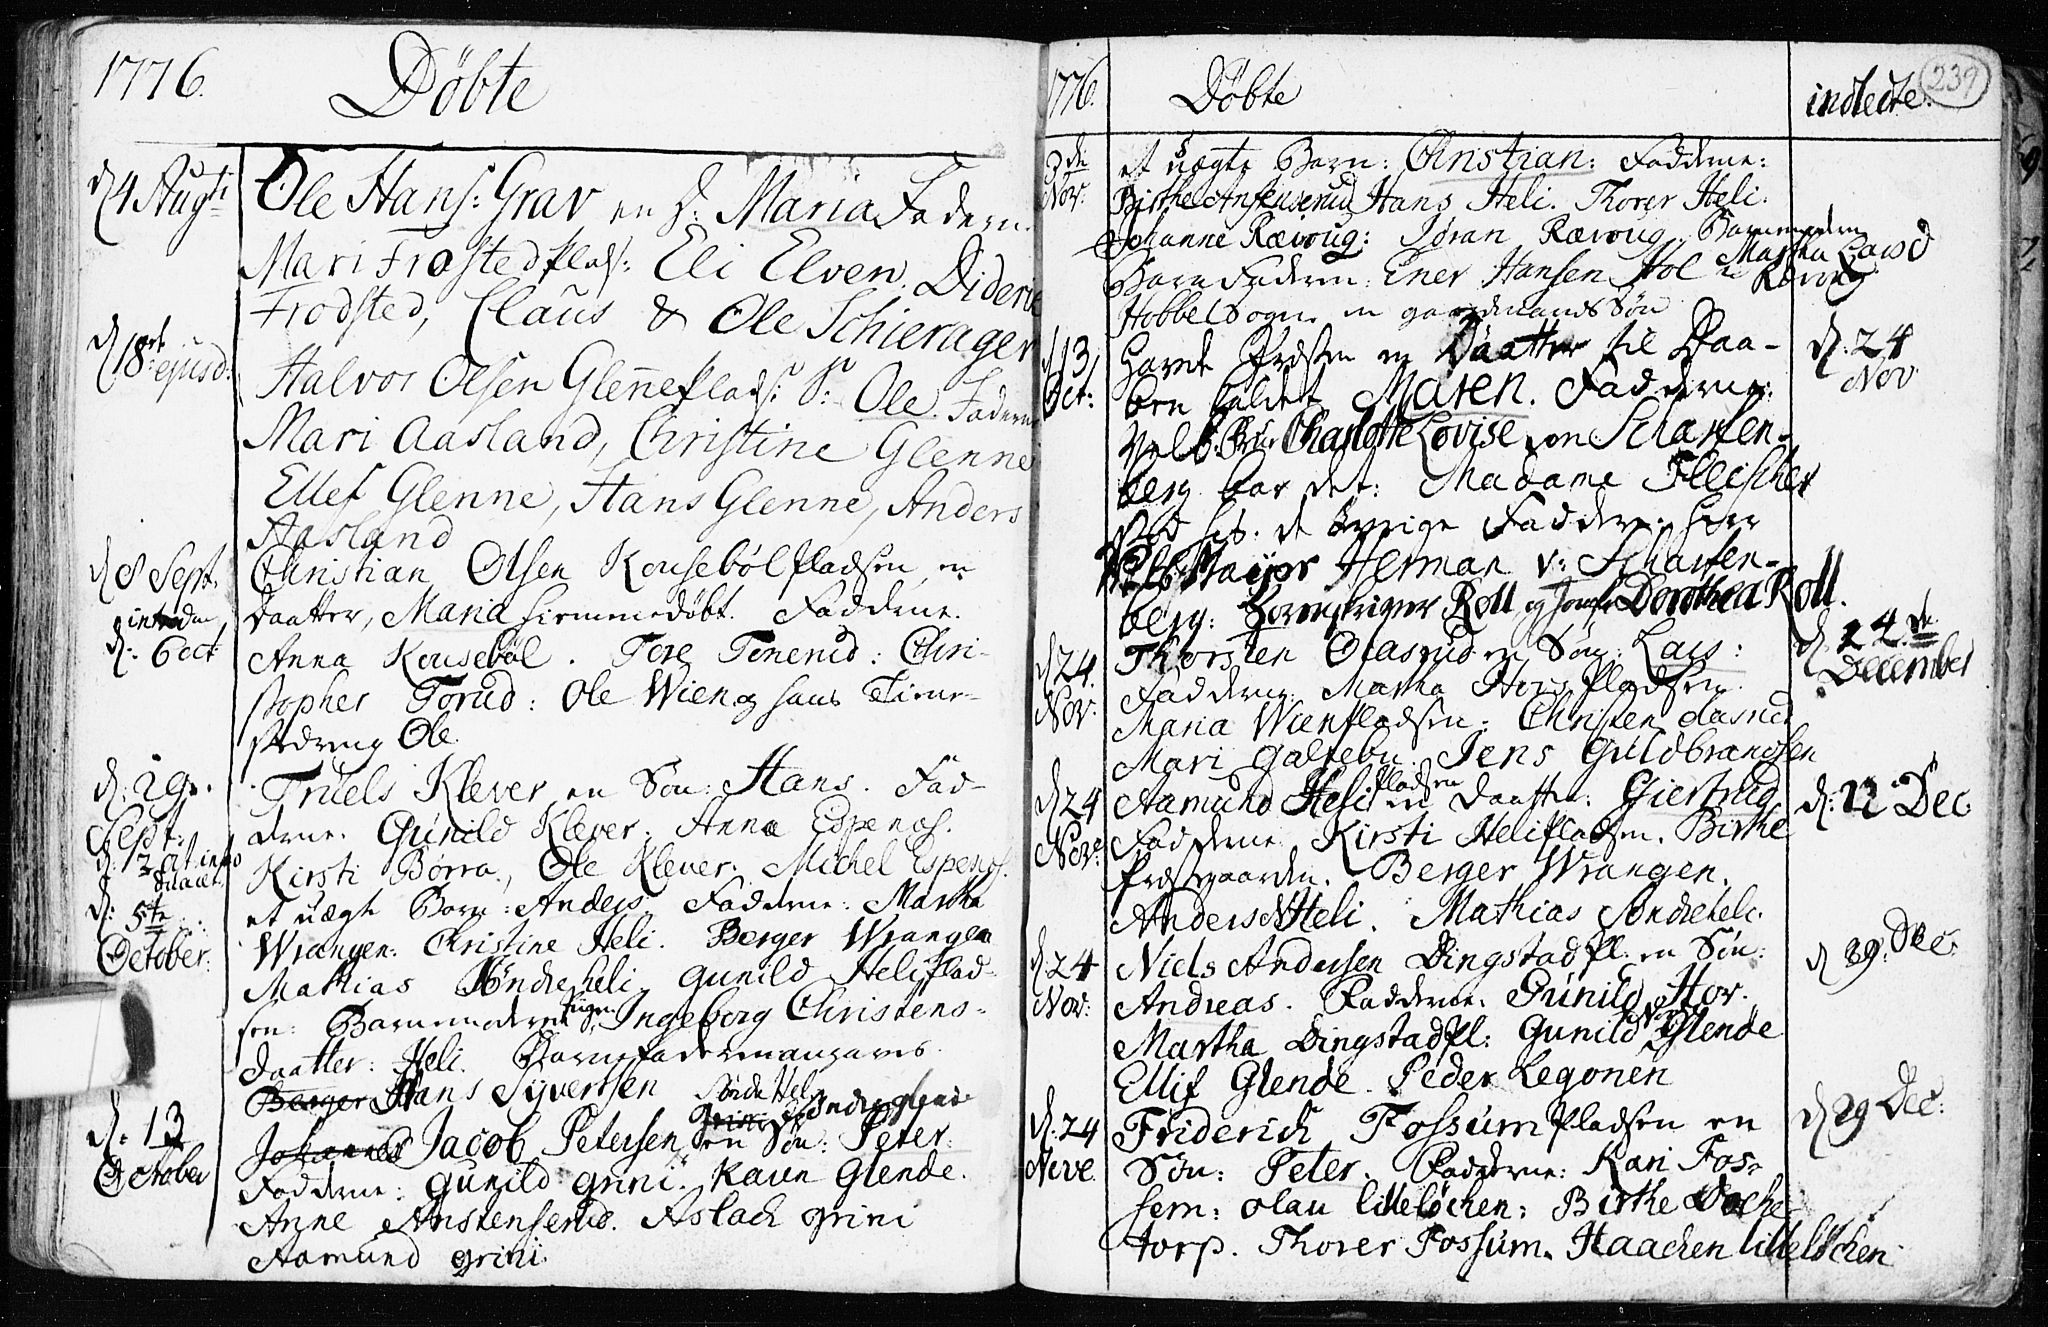 1776.
Döbte
d 4 Augti
Ole Hans: Grav en D: Maria Fadern.
Mari Frostedplads: Eli Elven. Diderik
Frodsted, Claus & Ole Schierager
d 18 ejusd:
Halvor Olsen Glenneplads: S: Ole. Faderne
Mari Aasland, Christine Glenne
Ellef Glenne, Hans Glenne, Anders
Aasland
d 8 Sept.
Christian Olsen Kousebölpladsen en
Daatter, Maria hiemmedöbt. Fadderne.
d: 6 Oct
Anna Kousebøl. Tore Tonerud: Chri-
stopher Torud: Ole Wien og hans Tiene-
stedreng Ole.
d: 29.
Sept:
Truels Klever en Sön: Hans. Fad-
derne. Gunild Klever. Anna Espenos.
Kirsti Börra, Ole Klever. Michel Espenos.
d: 5te
October.
et uægte Barn: Anders. Fadderne: Martha
Wrangen: Christine Heli. Berger Wrangen
Mathias Söndreheli. Gunild Heliplad-
sen: Barnemoderen Pigen Ingeborg Christens-
daatter: Heli. Barnefaderen angaves
Berger Hans Syvertsen Søndre Heli
d: 13
October
Johannes Jacob Petersen Grini Söndreglende en Sön: Peter.
Fadderne: Gunild Grini. Karen Glende.
Anne Anstenserud. Aslach Grini
Aamund Grini.
1776.
Döbte
indledte.
239
3die
Nov:
et uægte Barn: Christian: Fadderne:
Birthe Anstenserud Hans Heli. Thorer Heli.
Johanne Rævoug: Jöran Rævoug. Barnemoderen
Martha Larsd
Barnefaderen: Ener Hansen Hol Rævoug
Hobbel Sogn en gaardmands Sön
d 13
Oct:
Havde Præsten en Daatter til Daa-
ben kaldet Maren. Fadderne:
Velb. Frue Charlotte Lovise von Scharfen-
berg bar det: Madame Fleischer
stod hos. de övrige Faddere: Herr
Velb: Mayor Herman v: Scharfen-
berg: Sorenskriver Roll og Jomfr Dorothea Roll.
d: 24
Nov
d 24.
Nov:
Thorsten Oiasrud en Sön: Lars:
Fadderne: Martha Horspladsen.
Maria Wienpladsen: Christen Aasrud
Mari Galtebu. Jens Guldbrandsen
d: 24de
December
d 24
Nov:
Aamund Helipladsen en Daatter: Giertrud
Fadderne Kirsti Helipladsen. Birthe
Præstgaarden. Berger Wrangen.
Anders N Heli. Mathias Søndreheli.
d: 22 Dec.
d 24
Nov:
Niels Andersen Dingstadpl: en Sön:
Andreas. Fadderne. Gunild Hov.
Martha Dingstadpl: Gunild N Glende
Ellif Glende. Peder Legonen
d 29: Dec:
d. 24
Nove.
Friderich Fossumpladsen en
Sön: Peter. Fadderne: Kari Fos-
sem: Olau lilleløchen: Birthe Doche
torp. Thorer Fossum. Haachen lilleløchen.
d 29 Dec: